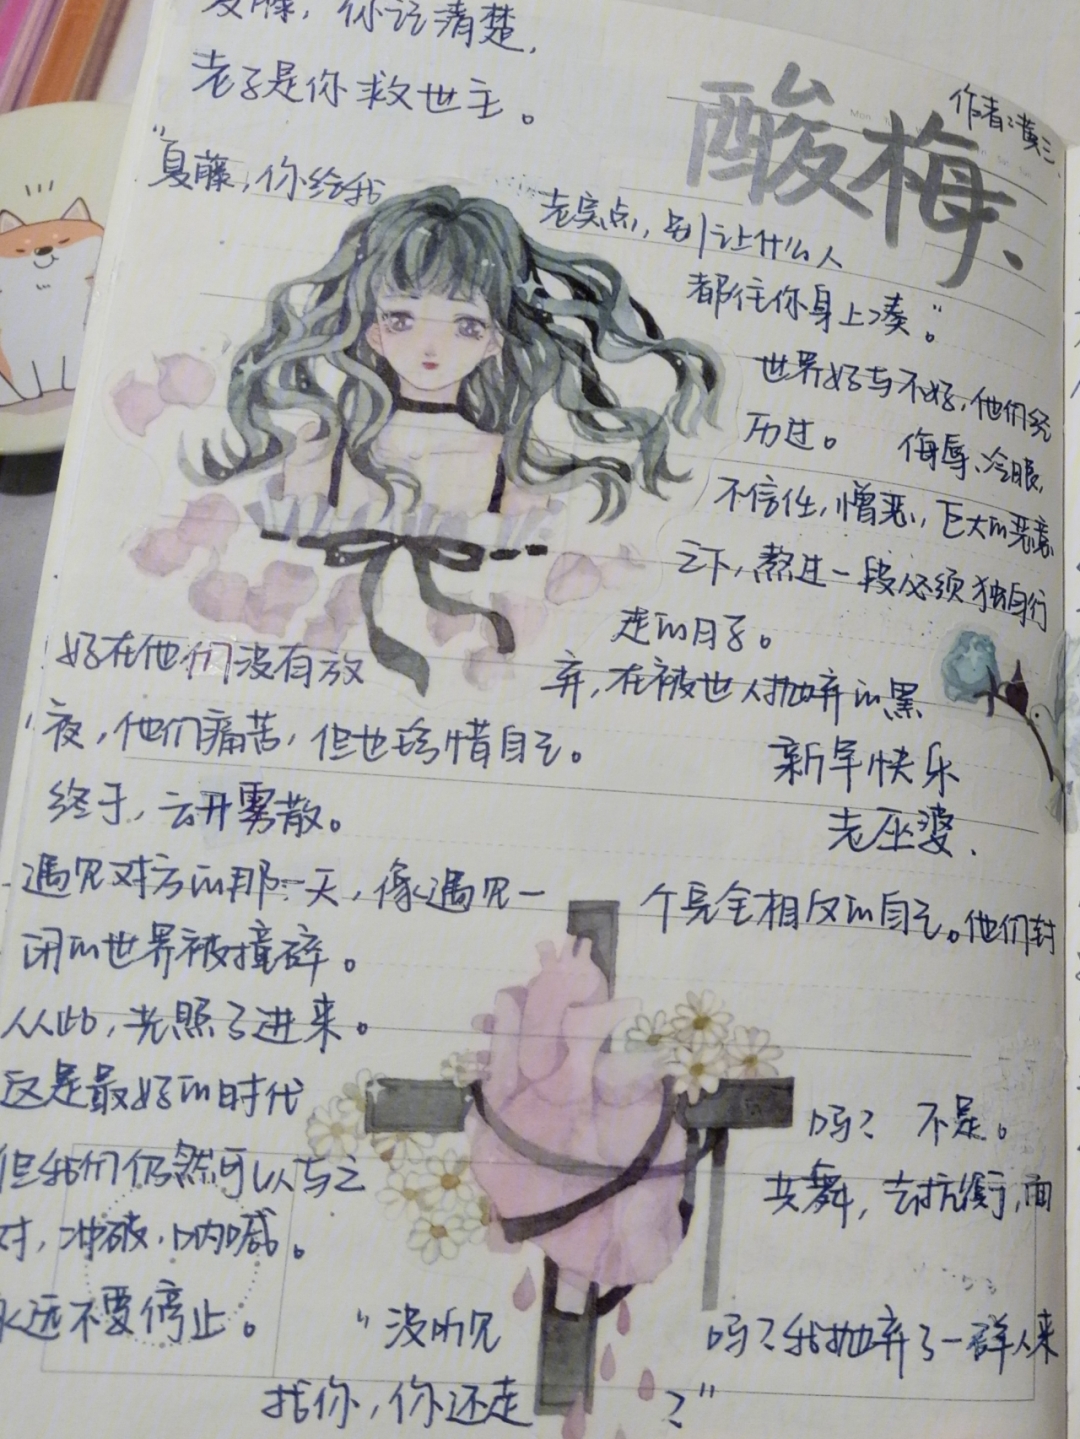 夏藤，你记清楚，
老子是你救世主。
酸梅、
作者：黄三
"夏藤，你给我 老实点，别让什么人
都往你身上凑。"
世界好与不好，他们经
历过。 侮辱、冷眼，
不信任，憎恶，巨大的恶意
之下，熬过一段必须独自行
走的日子。
好在他们没有放 弃，在被世人抛弃的黑
夜，他们痛苦，但也珍惜自己。
新年快乐
老巫婆、
终于，云开雾散。
遇见对方的那一天，像遇见一 个完全相反的自己。他们封
闭的世界被撞碎。
从此，光照了进来。
这是最好的时代 吗？ 不是。
但我们仍然可以与之 共舞，去抗衡，面
对，冲破，呐喊。
永远不要停止。
"没听见 吗？我抛弃了一群人来
找你，你还走 ？"